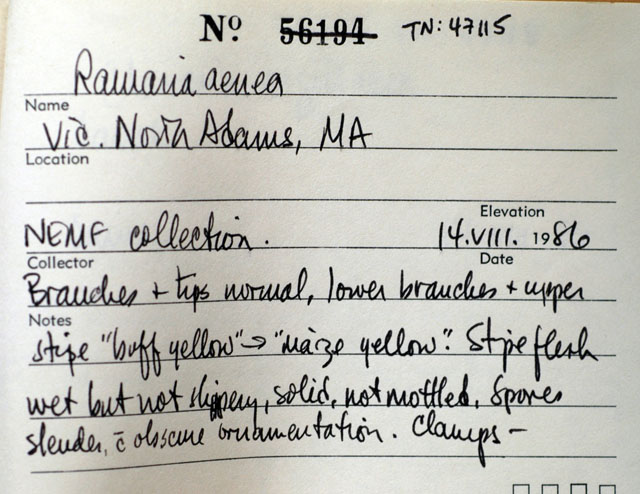 Nº 56194 TN: 47115
Ramaria aenea
Name
Vic. North Adams, MA
Location
Elevation
NEMF collection. 14.VIII. 1986
Collector Date
Branches + tips normal, lower branches + upper
Notes
stipe "buff yellow" → "maize yellow". Stipe flesh
wet but not slippery, solid, not mottled. Spores
slender, c̄ obscure ornamentation. Clamps –